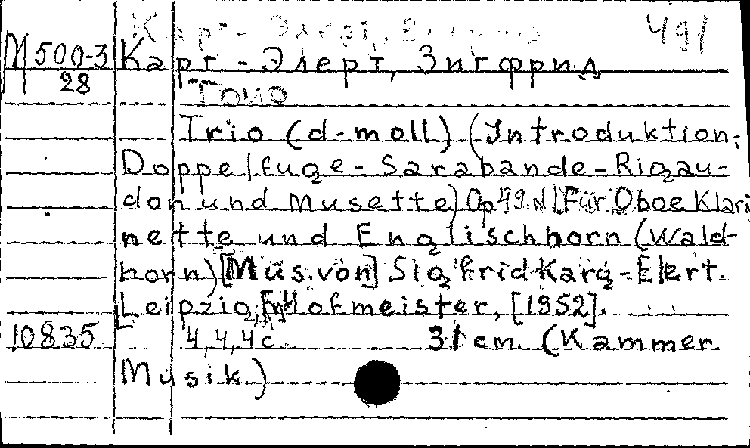 Карг - Элерт, Зигфрид 491
М 500-3 Карг-Элерт, Зигфрид
28
Трио
Trio (d-moll) (Introduktion,
Doppelfuge-Sarabande-Rigau-
don und Musette) Op 49 N1 Für Oboe Klari
nette und Englischhorn (Wald-
horn) [Mus. von] Sigfrid Karg-Elert.
Leipzig, Hofmeister, [1952].
10835 4,4,4 c. 31 cm. (Kammer
Musik)